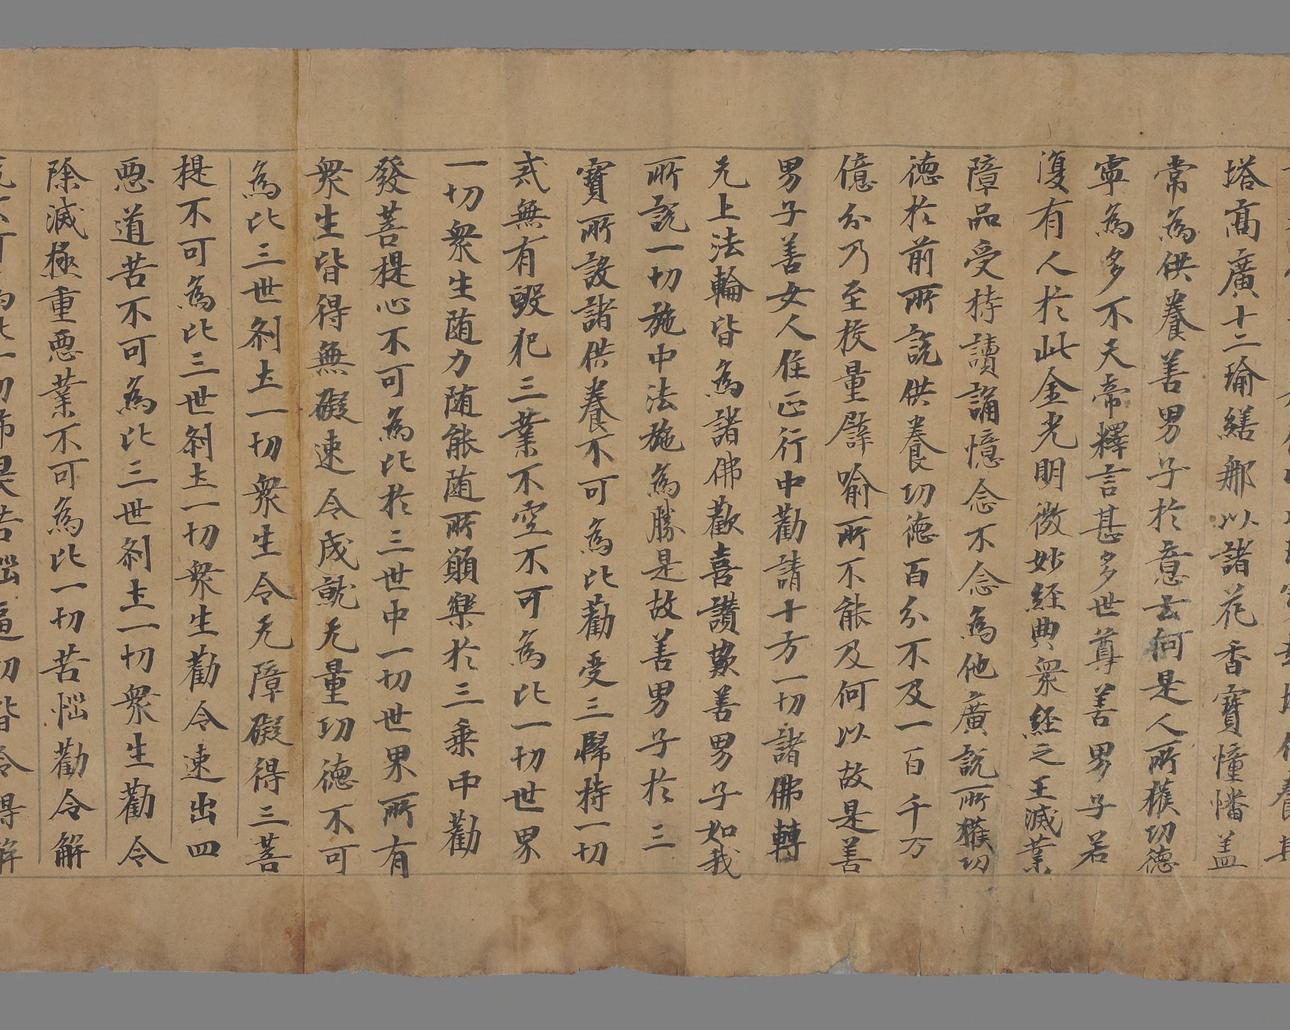 塔高廣十二瑜繕那以諸花香寶憧幡盖
常為供養善男子於意云何是人所穫功德
寧為多不天帝釋言甚多世尊善男子若
復有人於此金光明微妙經典衆經之王滅業
障品受持讀誦憶念不忘為他廣說所穫功
德於前所說供養功德百分不及一百千万
億分乃至挍量譬喻所不能及何以故是善
男子善女人住正行中勸請十方一切諸佛轉
无上法輪皆為諸佛歡喜讚歎善男子如我
所說一切施中法施為勝是故善男子於三
寶所設諸供養不可為比勸受三歸持一切
戒無有毀犯三業不空不可為比一切世界
一切衆生随力随能随所願樂於三乘中勸
發菩提心不可為比於三世中一切世界所有
衆生皆得無礙速令成就无量功德不可
為比三世刹土一切衆生令无障礙得三菩
提不可為比三世刹土一切衆生勸令速出四
惡道苦不可為比三世刹土一切衆生勸令
除滅極重惡業不可為比一切苦惱勸令解